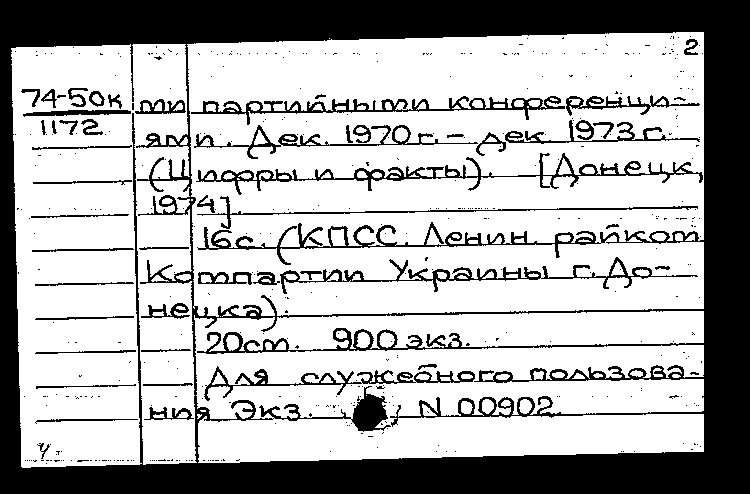 2
74-50к ми партийными конференци-
1172 ями. Дек. 1970 г. - дек 1973 г.
(Цифры и факты). [Донецк,
1974].
16 с. (КПСС. Ленин. райком
Компартии Украины г. До-
нецка).
20 см. 900 экз.
Для служебного пользова-
ния Экз. N 00902